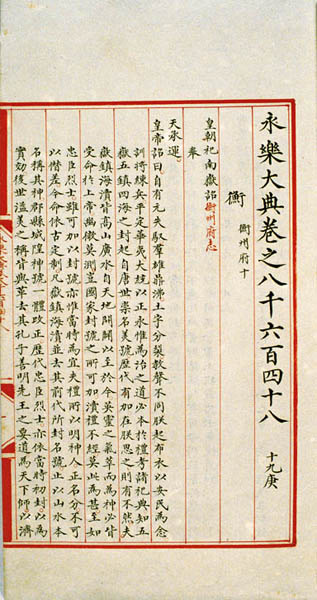 永樂大典卷之八千六百四十八 十九庚
衡 衡州府十
皇朝祀南嶽詔 衡州府志
奉
天承運
皇帝詔曰自有元失馭羣雄鼎沸土宇分裂聲教不同朕起布衣以安民為念
訓將練兵平定華夷大統以正永惟為治之道必本於禮考諸祀典知五
嶽五鎮四海之封起自唐世崇名美號歷代有加在朕思之則有不然夫
嶽鎮海瀆皆高山廣水自天地開闢以至於今英靈之氣萃而為神必皆
受命於上帝幽微莫測豈國家封號之所可加瀆禮不經莫此為甚至如
忠臣烈士雖可加以封號亦惟當時為宜夫禮所以明神人正名分不可
以僭差今命依古定制凡嶽鎮海瀆並去其前代所封名號止以山水本
名稱其神郡縣城隍神號一體改正歷代忠臣烈士亦依當時初封以為
實効後世溢美之稱皆與革去其孔子善明先王之要道為天下師以濟